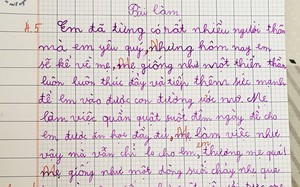 Bài làm
Em đã từng có rất nhiều người thân
mà em yêu quý, Nhưng hôm nay em
sẽ kể về mẹ, Mẹ giống như một thiên thần
luôn luôn thức dậy và tiếp thêm sức mạnh
để em vào được con đường ước mơ. Mẹ
làm việc quần quật suốt đêm ngày để cho
em được ăn học đầy đủ, Mẹ làm việc như
vậy mà vẫn chỉ lo cho em, thương mẹ quá!
Mẹ giống như một dòng suối chảy nhẹ qua